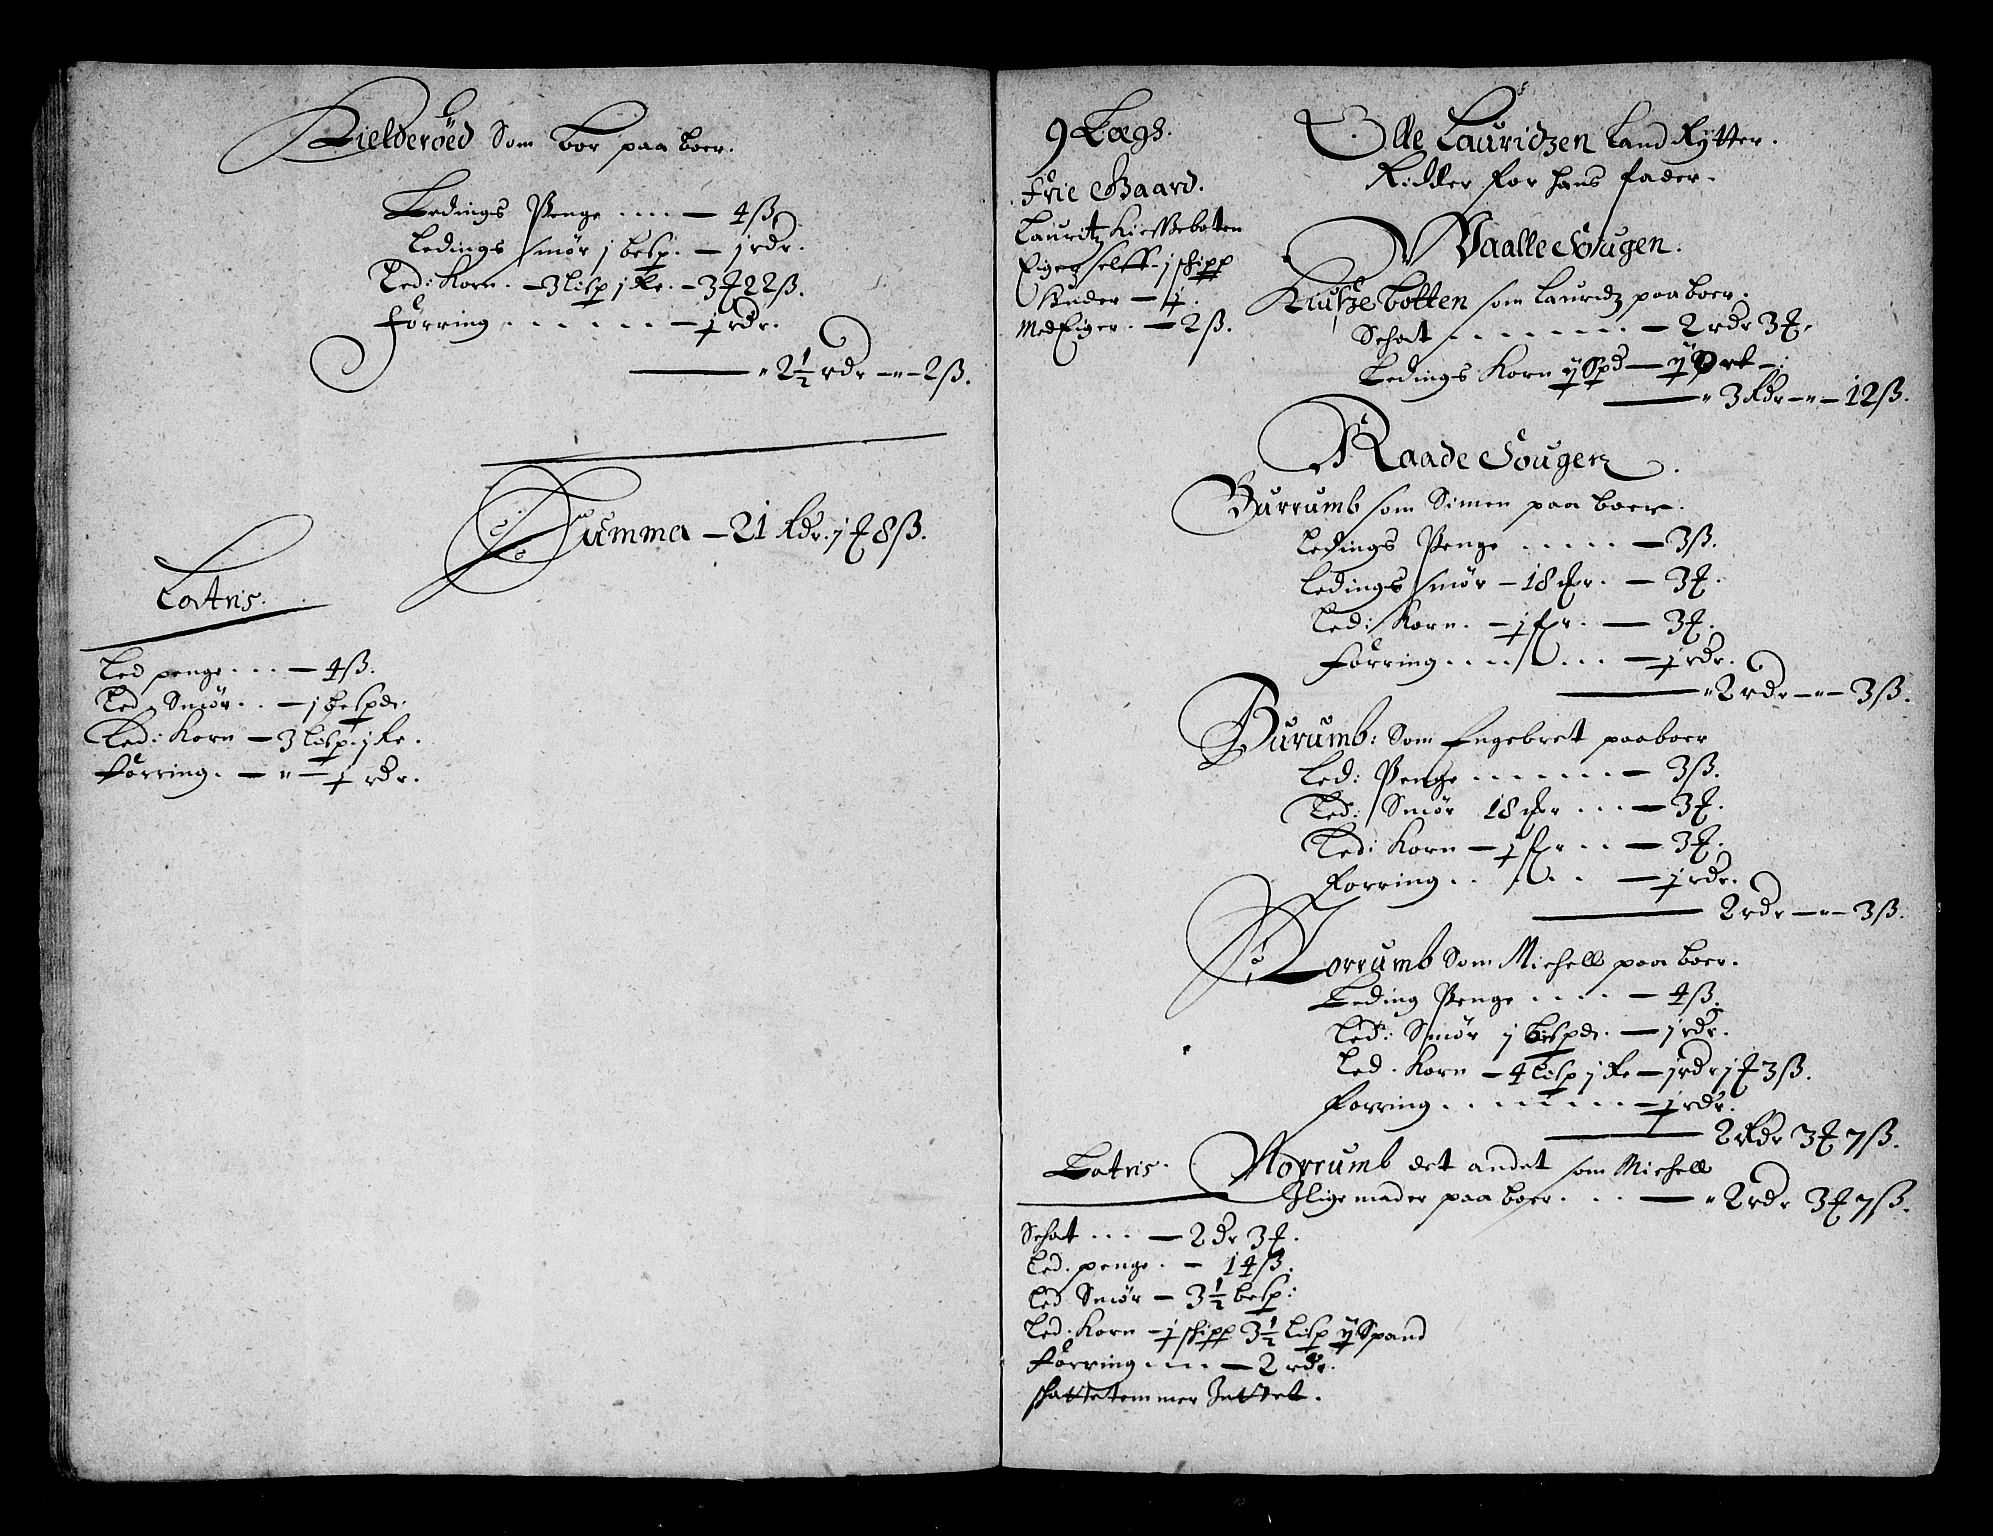 Kielderöed Som bor paa boer.
Ledings Penge .... — 4ß.
Ledings smör j besp. — j rdr.
Led: Korn. — 3 lisp j fr. — 3 ℔ 22ß.
Förring . . . . . . — ½ rdr.
— " 2½ rdr — " — 2ß.
Summa — 21 Rdr. j ℔ 8ß.
Latris.
Led penge . . . — 4ß.
Led Smör . . — j bespd.
Led: Korn — 3 lisp. j fr.
Förring. — " — ½ rdr.
9 Lægs.
Frie Gaard.
Lauritz Kiesßebotten
Eiger selff — j schipp
Kinder — ½.
Med Eiger. — 2ß.
Olle Lauridzen Land Rÿtter.
Ridder for hans fader.
Vaalle Sougen.
Kiusße botten som Lauridz paa boer.
Schat . . . . . . . — 2 rdr 3 ℔.
Ledings Korn ij Spd — ij Ort
— " 3 Rdr — " — 12ß.
Raade Sougen
Burrumb som Simen paa boer.
Ledings Penge . . . . . — 3ß.
Ledings smör — 18 mr. — 3 ℔.
Led: Korn. — ½ fr. — 3 ℔.
Förring . . . . . . — ½ rdr.
— " 2 rdr — " — 3ß.
Burumb: Som Engebret paa boer
Led: Penge . . . . . . . — 3ß.
Led: Smör 18 mr . . . — 3 ℔.
Led: Korn — ½ fr . . — 3 ℔.
Forring . . . . . — ½ rdr.
— 2 rdr — " — 3ß.
Norrumb Som Michell paa boer.
Leding Penge . . . . — 4ß.
Led: Smör j bespd. — j rdr.
Led. Korn — 4 lisp j fr — j rdr j ℔ 3ß.
Forring . . . . . . . — ½ rdr.
— 2 Rdr 3 ℔ 7ß.
Norrumb det andet som Michell
Jlige mader paa boer. . . . — " 2 rdr 3 ℔ 7ß.
Latris.
Schat . . . — 2 dr 3 ℔.
Led. penge . — 14ß.
Led Smör — 3½ besp:
Led. Korn — j schipp 3½ lisp ij Spand
Förring . . . . — 2 rdr.
schattetemmer Inttet.